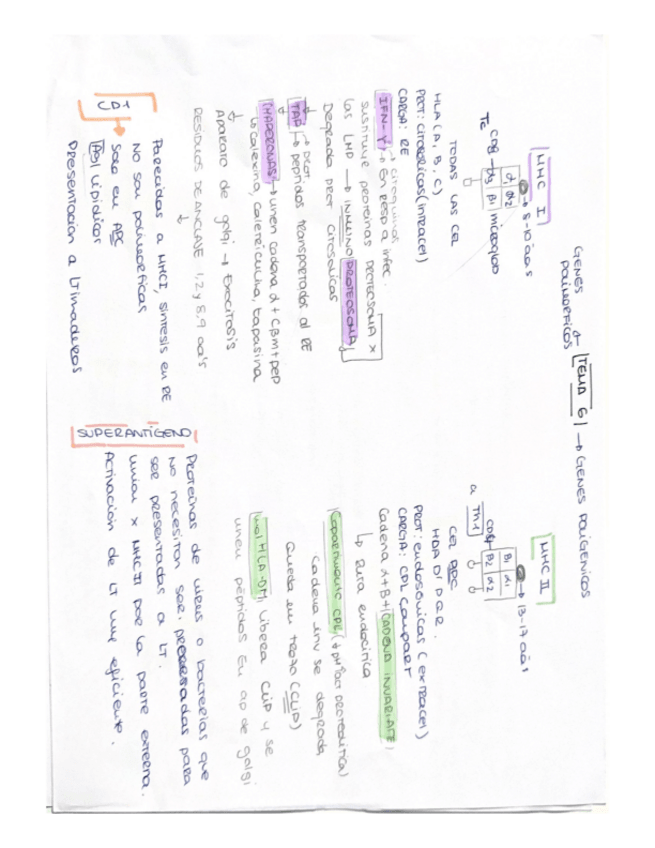 GENES POLIMÓRFICOS ← TEMA 6 → GENES POLIGENICOS
MHC I
→ 8-10 aa's
α1 α2
α3 β2 microglob
Tc CD8
TODAS LAS CEL
HLA (A, B, C)
PROT: citosólicas (intracel)
CARGA: RE
IFN-γ → citoquinas
→ En resp a infec.
sustituye proteinas PROTEOSOMA x
las LMP → INMUNO PROTEOSOMA
Degrada prot citosólicas
↓ prot.
TAP → péptidos transportados al RE
CHAPERONAS → unen cadena α + CβM + pep
↳ Calexina, Calreticulina, tapasina
↓
Aparato de golgi → Exocitosis
↓
RESIDUOS DE ANCLAJE 1, 2 y 8, 9 aa's
CD1
Parecidas a MHCI, síntesis en RE
NO son polimorficas
Solo en APC
Ag Lipídicos
Presentación a LT maduros
MHC II
→ 13-17 aa's
β1 α1
β2 α2
CD4
a Th
CEL APC
PROT: endosómicas (extracel)
CARGA: CPL compart
Cadena α+β+(CADENA INVARIATE)
↳ Ruta endocítica
Copartimento CPL (↓pH act proteolítica)
Cadena inv se degrada
Queda un trozo (CLIP)
mol H(LA-DM) libera CLIP y se
unen péptidos En ap de golgi
SUPERANTÍGENO
Proteínas de virus o bacterias que
NO necesitan ser procesadas para
ser presentadas a LT.
Unión x MHC II por la parte externa.
Activación de LT muy eficiente.